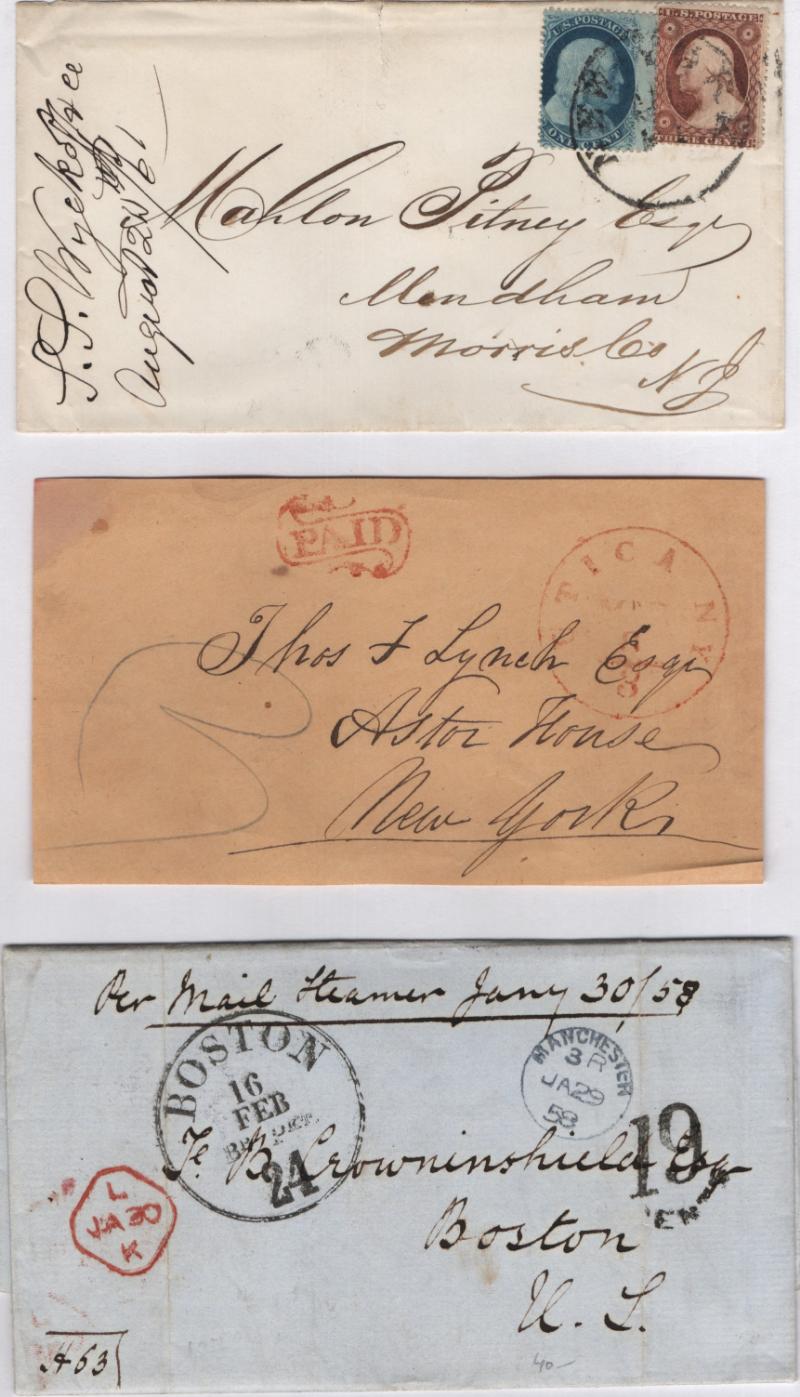 U.S. POSTAGE
ONE CENT
U.S. POSTAGE
THREE CENTS
August 2nd/61
Mahlon Pitney Esqr
Mendham
Morris Co
N J
PAID
UTICA N.Y.
Thos F Lynch Esqr
Astor House
New York
Per Mail Steamer Jany 30/58
BOSTON
16
FEB
BR. PKT.
24
MANCHESTER
3 R
JA 29
58
19
CENTS
F. B. Crowninshield Esqr
Boston
U. S.
L
JA 30
K
H 63
40-